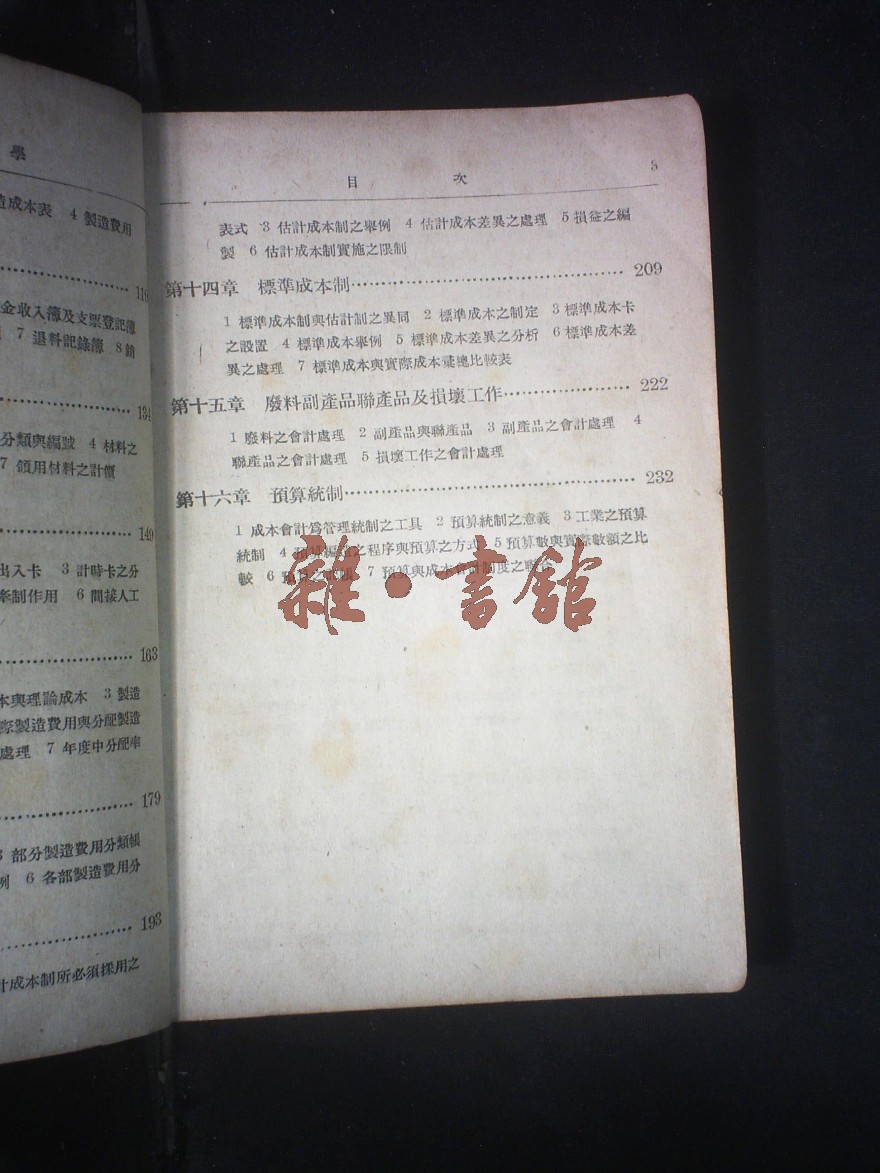 學
造成本表 4 製造費用
116
金收入簿及支票登記簿
7 退料記錄簿 8 銷
134
分類與編號 4 材料之
7 領用材料之計價
149
出入卡 3 計時卡之分
牽制作用 6 間接人工
163
本與理論成本 3 製造
際製造費用與分配製造
處理 7 年度中分配率
179
部分製造費用分類帳
例 6 各部製造費用分
193
計成本制所必須採用之
目 次 3
表式 3 估計成本制之舉例 4 估計成本差異之處理 5 損益之編
製 6 估計成本制實施之限制
第十四章 標準成本制 209
1 標準成本制與估計制之異同 2 標準成本之制定 3 標準成本卡
之設置 4 標準成本舉例 5 標準成本差異之分析 6 標準成本差
異之處理 7 標準成本與實際成本彙總比較表
第十五章 廢料副產品聯產品及損壞工作 222
1 廢料之會計處理 2 副產品與聯產品 3 副產品之會計處理 4
聯產品之會計處理 5 損壞工作之會計處理
第十六章 預算統制 232
1 成本會計爲管理統制之工具 2 預算統制之意義 3 工業之預算
統制 4 預算編造之程序與預算之方式 5 預算數與實際數額之比
較 6 預算之 7 預算與成本會計制度之聯合
雜·書館